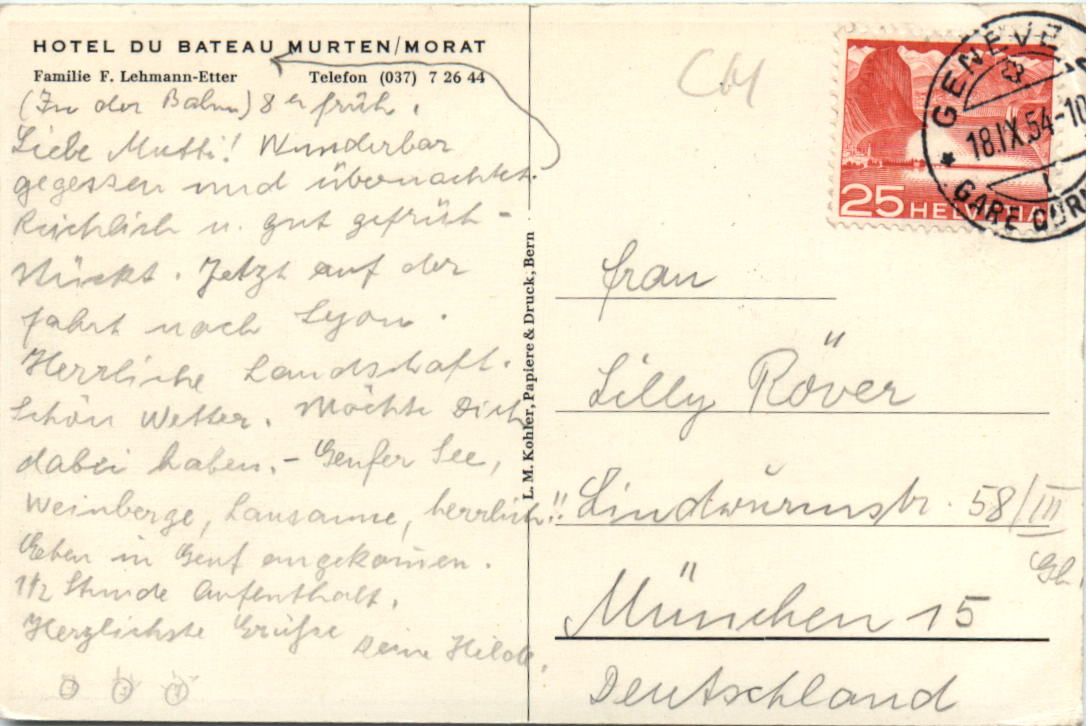 HOTEL DU BATEAU MURTEN/MORAT
Familie F. Lehmann-Etter Telefon (037) 7 26 44
(In der Bahn) 8 er früh.
Liebe Mutti! Wunderbar
gegessen und übernachtet.
Reichlich u. gut gefrüh-
stückt. Jetzt auf der
Fahrt nach Lyon.
Herrliche Landschaft.
Schön Wetter. Möchte Dich
dabei haben. – Genfer See,
Weinberge, Lausanne, herrlich!!
Eben in Genf angekommen.
1 1/2 Stunde Aufenthalt.
Herzlichste Grüße
Deine Hilde.
L. M. Kohler, Papiere & Druck, Bern
CH
25 HELVETIA
GENEVE
18.IX.54-10
GARE CORN
Frau
Lilly Röver
Lindwürmstr. 58/III
Gh
München 15
Deutschland